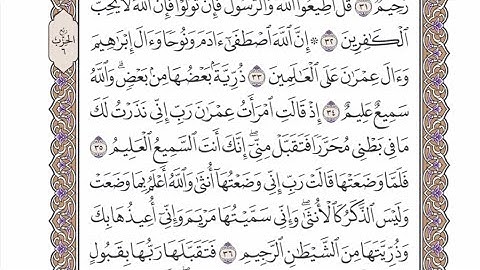 رَّحِيمٌ ٣١ قُلْ أَطِيعُوا۟ ٱللَّهَ وَٱلرَّسُولَ فَإِن تَوَلَّوْا۟ فَإِنَّ ٱللَّهَ لَا يُحِبُّ
ٱلْكَٰفِرِينَ ٣٢ ۞ إِنَّ ٱللَّهَ ٱصْطَفَىٰٓ ءَادَمَ وَنُوحًا وَءَالَ إِبْرَٰهِيمَ
وَءَالَ عِمْرَٰنَ عَلَى ٱلْعَٰلَمِينَ ٣٣ ذُرِّيَّةًۢ بَعْضُهَا مِنۢ بَعْضٍ ۗ وَٱللَّهُ
سَمِيعٌ عَلِيمٌ ٣٤ إِذْ قَالَتِ ٱمْرَأَتُ عِمْرَٰنَ رَبِّ إِنِّى نَذَرْتُ لَكَ
مَا فِى بَطْنِى مُحَرَّرًا فَتَقَبَّلْ مِنِّىٓ ۖ إِنَّكَ أَنتَ ٱلسَّمِيعُ ٱلْعَلِيمُ ٣٥
فَلَمَّا وَضَعَتْهَا قَالَتْ رَبِّ إِنِّى وَضَعْتُهَآ أُنثَىٰ وَٱللَّهُ أَعْلَمُ بِمَا وَضَعَتْ
وَلَيْسَ ٱلذَّكَرُ كَٱلْأُنثَىٰ ۖ وَإِنِّى سَمَّيْتُهَا مَرْيَمَ وَإِنِّىٓ أُعِيذُهَا بِكَ
وَذُرِّيَّتَهَا مِنَ ٱلشَّيْطَٰنِ ٱلرَّجِيمِ ٣٦ فَتَقَبَّلَهَا رَبُّهَا بِقَبُولٍ
رُبْع
ٱلْحِزْب
٦